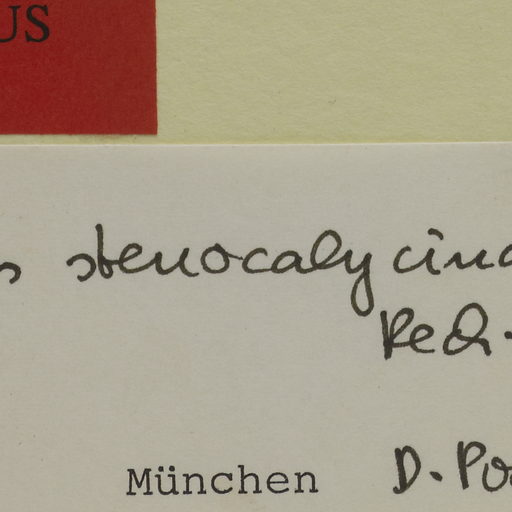 US
s stenocalycina
Ped.
München D. Po